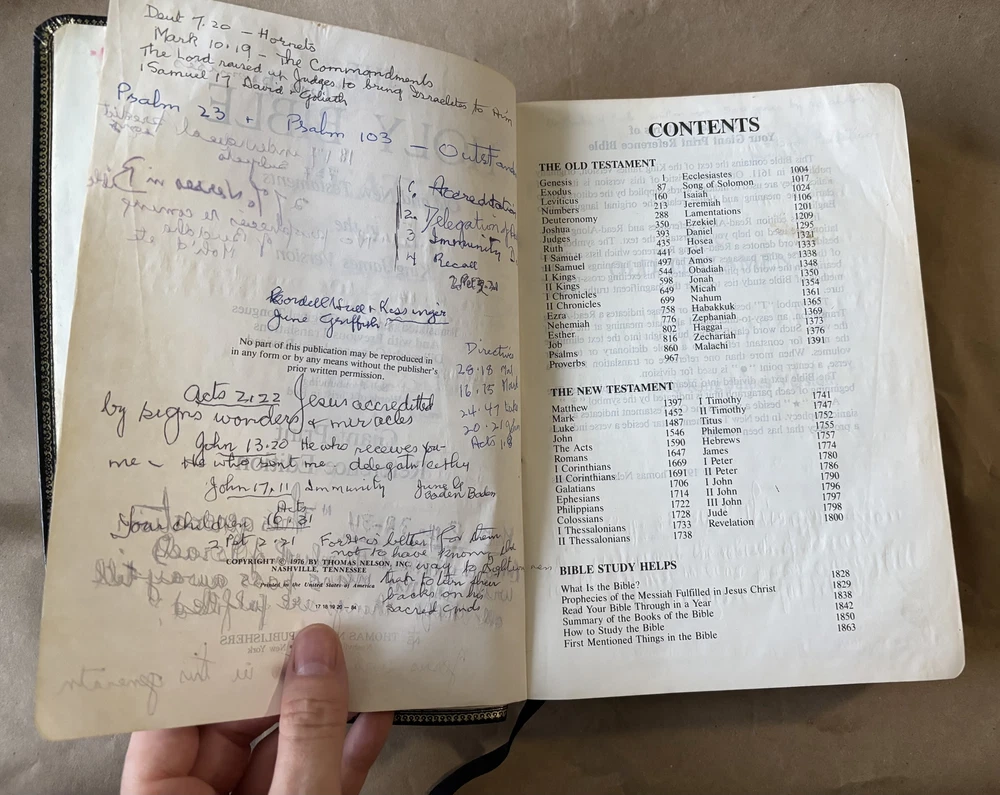 Deut 7.20 — Hornets
Mark 10.19 — The Commandments
The Lord raised up Judges to bring Israelites to Him
1 Samuel 17 David & Goliath
Psalm 23 + Psalm 103 — Outstand
1. Accreditatio
2. Delegation of
3 Immunity
4 Recall
2 Pet 2-21
Cordell Hull + Kissinger
June Griffith
No part of this publication may be reproduced in
in any form or by any means without the publisher's
prior written permission.
Directive
28.18 Mat
16.15 Mark
24.47 Luke
20.21 John
Acts 1.8
Acts 2:22 Jesus accredited
by signs wonders & miracles
John 13.20 He who receives you
me — He who sent me
John 17.11 Immunity June G
Baden Baden
Acts
Your children 16.31
2 Pet 2.21 For it is better for them
not to have known the
way to Righteousness
than to turn their
backs on his
sacred
COPYRIGHT © 1976 BY THOMAS NELSON, INC.
NASHVILLE, TENNESSEE
Printed in the United States of America
17 18 19 20 – 84
CONTENTS
THE OLD TESTAMENT
Genesis 1
Exodus 87
Leviticus 160
Numbers 213
Deuteronomy 288
Joshua 350
Judges 393
Ruth 435
I Samuel 441
II Samuel 497
I Kings 544
II Kings 598
I Chronicles 649
II Chronicles 699
Ezra 758
Nehemiah 776
Esther 802
Job 816
Psalms 860
Proverbs 967
Ecclesiastes 1004
Song of Solomon 1017
Isaiah 1024
Jeremiah 1106
Lamentations 1201
Ezekiel 1209
Daniel 1295
Hosea 1321
Joel 1333
Amos 1338
Obadiah 1348
Jonah 1350
Micah 1354
Nahum 1361
Habakkuk 1365
Zephaniah 1369
Haggai 1373
Zechariah 1376
Malachi 1391
THE NEW TESTAMENT
Matthew 1397
Mark 1452
Luke 1487
John 1546
The Acts 1590
Romans 1647
I Corinthians 1669
II Corinthians 1691
Galatians 1706
Ephesians 1714
Philippians 1722
Colossians 1728
I Thessalonians 1733
II Thessalonians 1738
I Timothy 1741
II Timothy 1747
Titus 1752
Philemon 1755
Hebrews 1757
James 1774
I Peter 1780
II Peter 1786
I John 1790
II John 1796
III John 1797
Jude 1798
Revelation 1800
BIBLE STUDY HELPS
What Is the Bible? 1828
Prophecies of the Messiah Fulfilled in Jesus Christ 1829
Read Your Bible Through in a Year 1838
Summary of the Books of the Bible 1842
How to Study the Bible 1850
First Mentioned Things in the Bible 1863